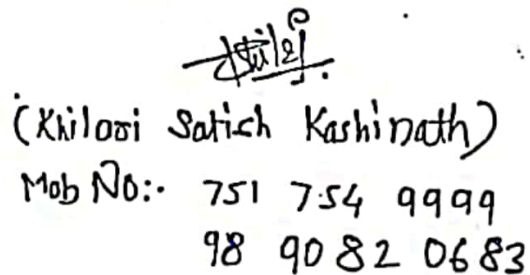 (Khilari Satish Kashinath)
Mob No:- 751 754 9999
98 90 82 06 83